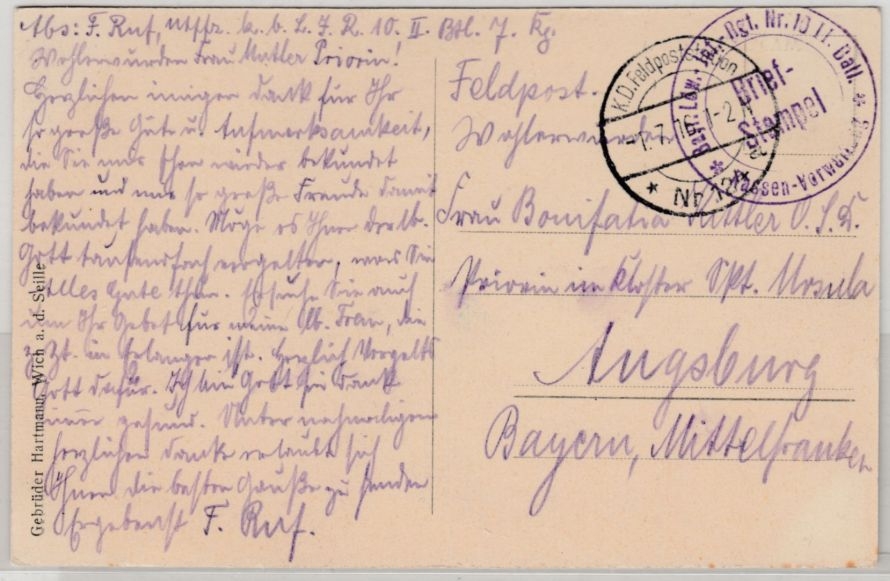 Abs: F. Ruf, Utffz. k. b. L. J. R. 10. II. Btl. 7. Kg.
Wohlerwürden Frau Mutter Priorin!
Herzlichen innigen Dank für Ihr
so große Güte u. Aufmerksamkeit,
die Sie uns Ehen wieder bekundet
haben und uns so große Freude damit
bekundet haben. Möge es Ihnen der lb.
Gott tausendfach vergelten, was Sie
Alles Gute thun. Ersuche Sie auch
um Ihr Gebet für meine lb. Frau, die
z. Zt. in Erlangen ist. Herzlich Vergelts
Gott dafür. Ich bin Gott sei Dank
immer gesund. Unter nochmaligen
herzlichen Danke erlaubt sich
Ihnen die besten Grüße zu senden
Ergebenst F. Ruf.
Gebrüder Hartmann, Wich a. d. Seille
Feldpost.
Wohlerwürden
Frau Bonifatia Mattler O. S. D.
Priorin im Kloster Skt. Ursula
Augsburg
Bayern, Mittelfranken
K.D. Feldpoststation
-1.7.
Nr 12
Bayr. Ldw.-Inf.-Rgt. Nr. 10 II. Batl.
Brief-
Stempel
Kassen-Verwaltung